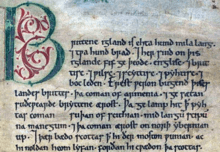 Brittene igland is ehta hund mila lang.
7 tpa hund brad. 7 her sind on þis
iglande fif geþeode. englisc. 7 brit
tisc. 7 pilsc. 7 scyttisc. 7 pyhtisc. 7
boc leden. Erest peron bugend þises
landes brittes. þa coman of armenia. 7 gesætan
suðepearde bryttene ærost. Þa gelamp hit þ pyh
tas coman suþan of scithian. mid langū scipū
na manegum. 7 þa coman ærost on norþ ybernian
up. 7 þær bædo scottas þ hi ðer moston punian. ac
hi noldan heom lyfan. forðan hi cpædon þa scottas.